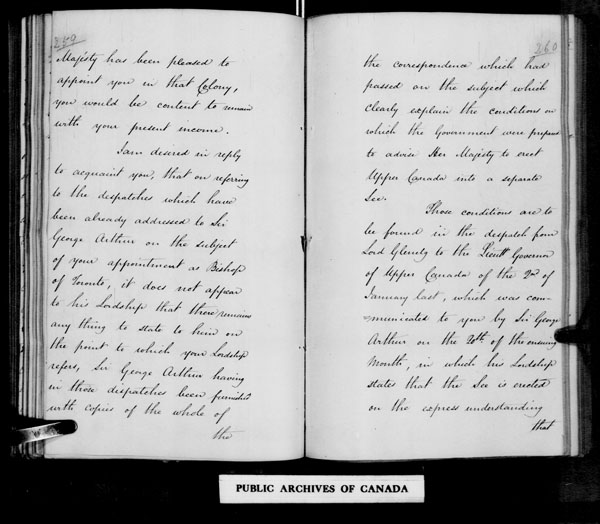 250
Majesty has been pleased to
appoint you in that Colony,
you would be content to remain
with your present income.
I am desired in reply
to acquaint you, that on referring
to the despatches which have
been already addressed to Sir
George Arthur on the subject
of your appointment as Bishop
of Toronto, it does not appear
to his Lordship that there remains
any thing to state to him on
the point to which your Lordship
refers, Sir George Arthur having
in those despatches been furnished
with copies of the whole of
the
260
the correspondence which had
passed on the subject which
clearly explain the conditions on
which the Government were prepared
to advise Her Majesty to erect
Upper Canada into a separate
See.
Those conditions are to
be found in the despatch from
Lord Glenelg to the Lieutt Governor
of Upper Canada of the 2nd of
January last, which was com-
-municated to you by Sir George
Arthur on the 20th of the ensuing
Month, in which his Lordship
states that the See is erected
on the express understanding
that
PUBLIC ARCHIVES OF CANADA